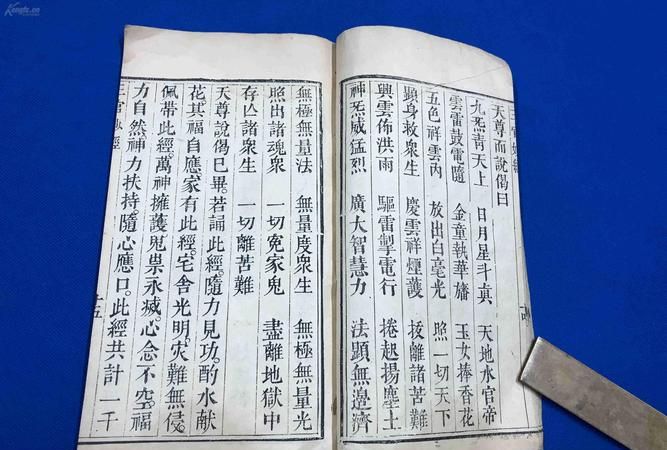 天尊而說偈曰
九炁青天上 日月星斗真 天地水官帝
雲雷鼓電隨 金童執華旛 玉女捧香花
五色祥雲內 放出白毫光 照一切天下
顯身救衆生 慶雲祥煙護 拔離諸苦難
興雲佈洪雨 驅雷掣電行 捲起揚塵土
神炁威猛烈 廣大智慧力 法顯無邊濟
無極無量法 無量度衆生 無極無量光
照出諸魂衆 一切寃家鬼 盡離地獄中
存亾諸衆生 一切離苦難
天尊說偈已畢。若誦此經。隨力見功。酌水献
花。其福自應。家有此經。宅舍光明。灾難無侵。
佩帶此經。萬神擁護。鬼祟永滅。心念不空。福
力自然。神力扶持。隨心應口。此經共計一千
三官妙經 十五
Kongfz.cn